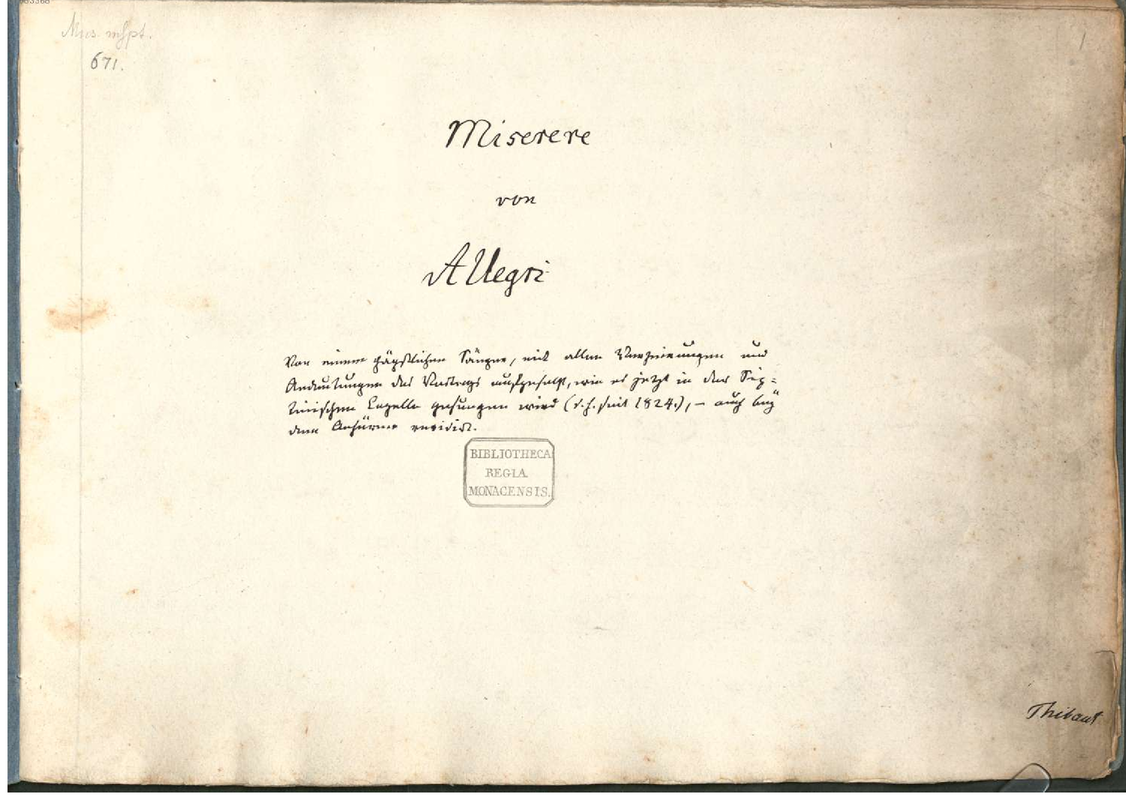 Mus. mspt.
671.
1
Miserere
von
Allegri
Von einem päpstlichen Sänger, mit allen Verzierungen und
Andeutungen des Vortrags aufgesetzt, wie es jetzt in der Six-
tinischen Capelle gesungen wird (d. h. seit 1824.), – auch
dem revidirt.
BIBLIOTHECA
REGIA
MONACENSIS.
Thibaut